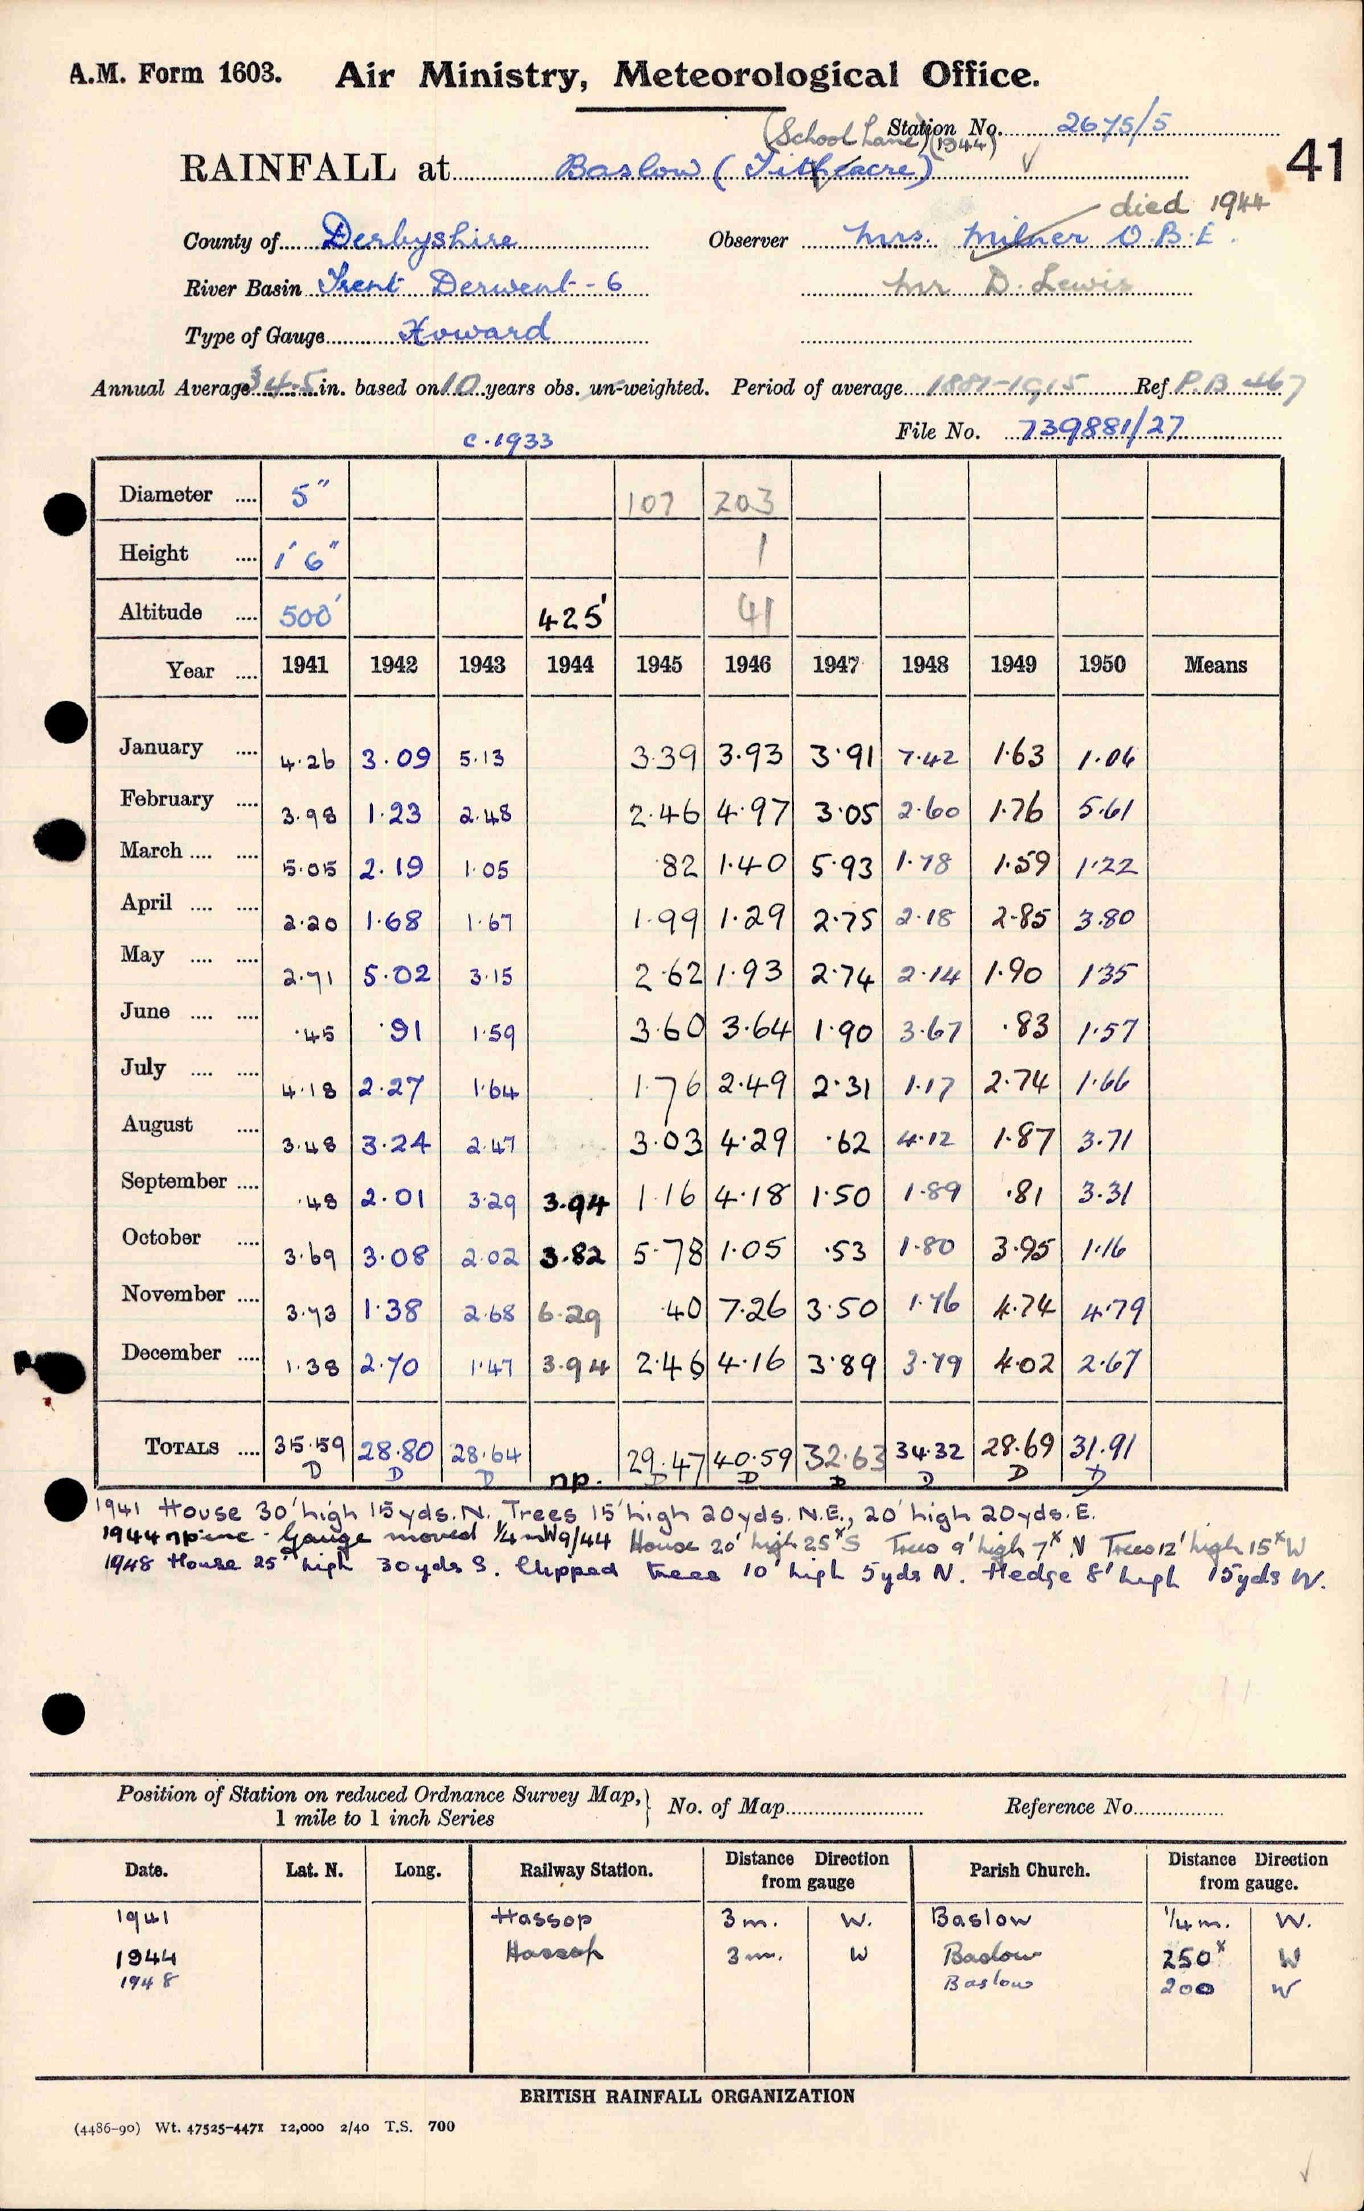 A.M. Form 1603. Air Ministry, Meteorological Office.
Station No. 2675/5
(School Lane) (1944)
41
RAINFALL at Baslow (Titheacre)
died 1944
County of Derbyshire Observer Mrs. Milner O.B.E.
River Basin Trent Derwent - 6 Mr D. Lewis
Type of Gauge Howard
Annual Average 34.5 in. based on 10 years obs. un-weighted. Period of average 1881-1915 Ref P.B. 467
File No. 739881/27
c.1933
Diameter .... 5" 107 203
Height .... 1' 6" 1
Altitude .... 500' 425' 41
Year .... 1941 1942 1943 1944 1945 1946 1947 1948 1949 1950 Means
January .... 4.26 3.09 5.13 3.39 3.93 3.91 7.42 1.63 1.06
February .... 3.98 1.23 2.48 2.46 4.97 3.05 2.60 1.76 5.61
March .... .... 5.05 2.19 1.05 .82 1.40 5.93 1.78 1.59 1.22
April .... .... 2.20 1.68 1.67 1.99 1.29 2.75 2.18 2.85 3.80
May .... .... 2.71 5.02 3.15 2.62 1.93 2.74 2.14 1.90 1.35
June .... .... .45 .91 1.59 3.60 3.64 1.90 3.67 .83 1.57
July .... .... 4.18 2.27 1.64 1.76 2.49 2.31 1.17 2.74 1.66
August .... 3.48 3.24 2.47 3.03 4.29 .62 4.12 1.87 3.71
September .... .48 2.01 3.29 3.94 1.16 4.18 1.50 1.89 .81 3.31
October .... 3.69 3.08 2.02 3.82 5.78 1.05 .53 1.80 3.95 1.16
November .... 3.73 1.38 2.68 6.29 .40 7.26 3.50 1.76 4.74 4.79
December .... 1.38 2.70 1.47 3.94 2.46 4.16 3.89 3.79 4.02 2.67
TOTALS .... 35.59 28.80 28.64 29.47 40.59 32.63 34.32 28.69 31.91
D D D np. D D D D D D
1941 House 30' high 15yds. N. Trees 15' high 20yds. N.E., 20' high 20yds. E.
1944 Gauge moved 1/4 m W 9/44 House 20' high 25x S Trees 9' high 7x N Trees 12' high 15x W
1948 House 25' high 30yds S. Clipped trees 10' high 5yds N. Hedge 8' high 15yds W.
Position of Station on reduced Ordnance Survey Map,} No. of Map Reference No.
1 mile to 1 inch Series
Date. Lat. N. Long. Railway Station. Distance Direction from gauge Parish Church. Distance Direction from gauge.
1941 Hassop 3 m. W. Baslow 1/4 m. W.
1944 Hassop 3 m. W Baslow 250x W
1948 Baslow 200 W
BRITISH RAINFALL ORGANIZATION
(4486-90) Wt. 47525-4471 12,000 2/40 T.S. 700